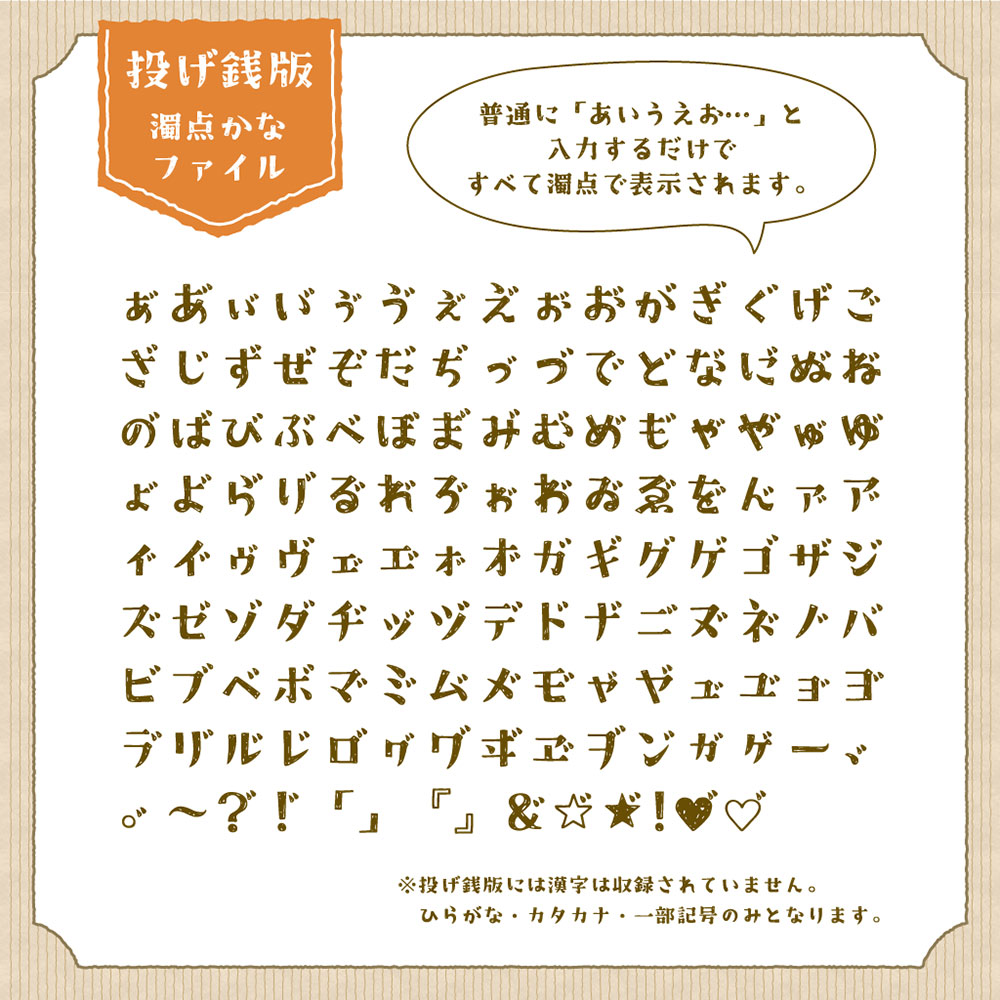 投げ銭版
濁点かな
ファイル
普通に「あいうえお…」と
入力するだけで
すべて濁点で表示されます。
ぁ゙あ゙ぃ゙い゙ぅ゙ゔぇ゙え゙ぉ゙お゙がぎぐげご
ざじずぜぞだぢっ゙づでどな゙に゙ぬ゙ね゙
の゙ばびぶべぼま゙み゙む゙め゙も゙ゃ゙や゙ゅ゙ゆ゙
ょ゙よ゙ら゙り゙る゙れ゙ろ゙ゎ゙わ゙ゐ゙ゑ゙を゙ん゙ァ゙ア゙
ィ゙イ゙ゥ゙ヴェ゙エ゙ォ゙オ゙ガギグゲゴザジ
ズゼゾダヂッ゙ヅデドナ゙ニ゙ヌ゙ネ゙ノ゙バ
ビブベボマ゙ミ゙ム゙メ゙モ゙ャ゙ヤ゙ュ゙ユ゙ョ゙ヨ゙
ラ゙リ゙ル゙レ゙ロ゙ヮ゙ヷヸヹヺン゙ヵ゙ヶ゙ー、゙
。゙〜?゙!゙「」『』&゙☆゙★゙!♥゙♡゙
※投げ銭版には漢字は収録されていません。
ひらがな・カタカナ・一部記号のみとなります。